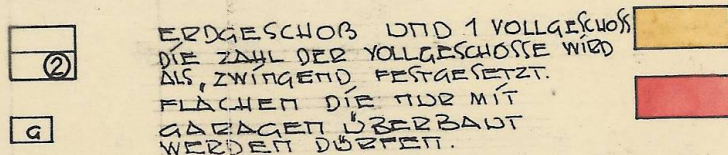 ERDGESCHOß UND 1 VOLLGESCHOSS
② DIE ZAHL DER VOLLGESCHOSSE WIRD
ALS, ZWINGEND FESTGESETZT.
FLÄCHEN DIE NUR MIT
G GARAGEN ÜBERBAUT
WERDEN DÜRFEN.